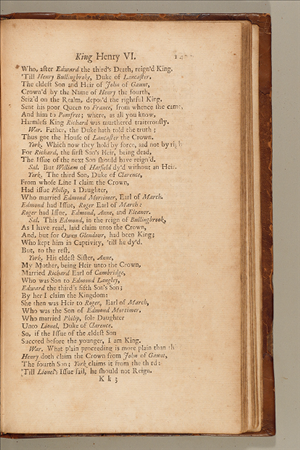 King Henry VI.
Who, after Edward the third's Death, reign'd King,
'Till Henry Bullingbroke, Duke of Lancaster,
The eldest Son and Heir of John of Gaunt,
Crown'd by the Name of Henry the fourth,
Seiz'd on the Realm, depos'd the rightful King,
Sent his poor Queen to France, from whence she came,
And him to Pomfret; where, as all you know,
Harmless King Richard was murthered traiterously.
War. Father, the Duke hath told the truth;
Thus got the House of Lancaster the Crown.
York. Which now they hold by force, and not by
For Richard, the first Son's Heir, being dead,
The Issue of the next Son should have reign'd.
Sal. But William of Hatfield dy'd without an Heir.
York. The third Son, Duke of Clarence,
From whose Line I claim the Crown,
Had issue Philip, a Daughter,
Who married Edmund Mortimer, Earl of March.
Edmund had Issue, Roger Earl of March;
Roger had Issue, Edmund, Anne, and Eleanor.
Sal. This Edmund, in the reign of Bullingbrook,
As I have read, laid claim unto the Crown,
And, but for Owen Glendour, had been King;
Who kept him in Captivity, 'till he dy'd.
But, to the rest.
York. His eldest Sister, Anne,
My Mother, being Heir unto the Crown,
Married Richard Earl of Cambridge,
Who was Son to Edmond Langley,
Edward the third's fifth Son's Son;
By her I claim the Kingdom:
She then was Heir to Roger, Earl of March,
Who was the Son of Edmond Mortimer,
Who married Philip, sole Daughter
Unto Lionel, Duke of Clarence.
So, if the Issue of the eldest Son
Succeed before the younger, I am King.
War. What plain proceeding is more plain than
Henry doth claim the Crown from John of Gaunt,
The fourth Son; York claims it from the third:
'Till Lionel's Issue fail, he should not Reign.
K k 3